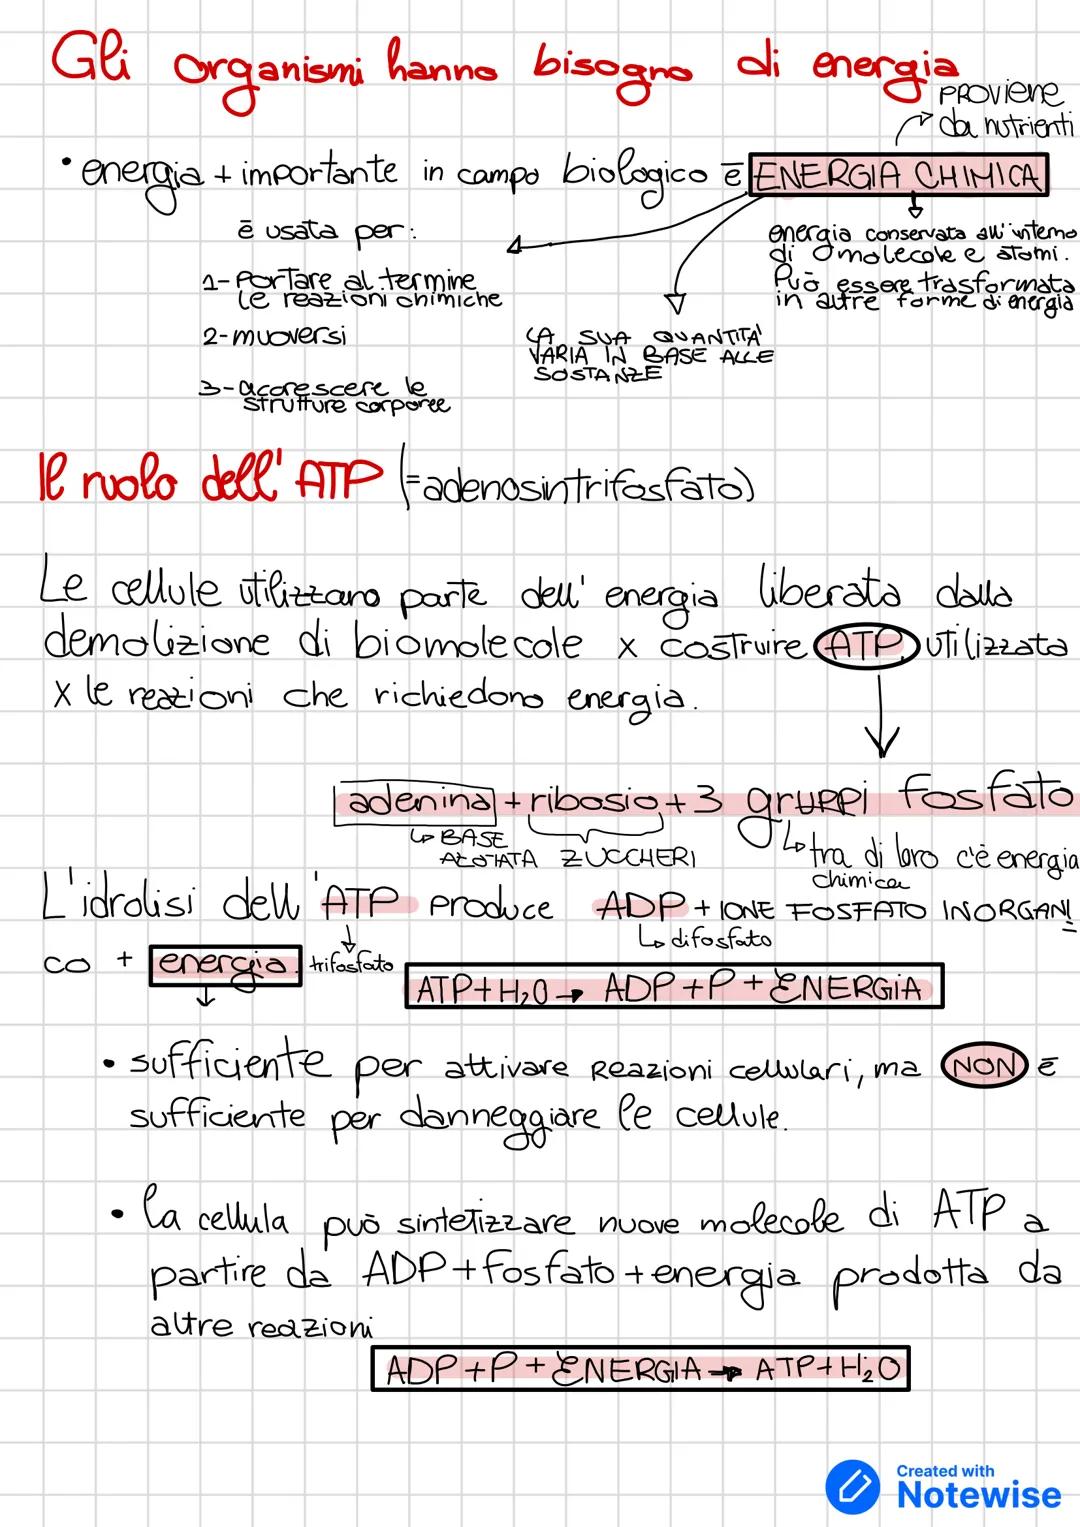 Gli organismi hanno bisogno di energia
PROVIENE
da nutrienti
• energia + importante in campo biologico ē ENERGIA CHIMICA
ē usata per:
1- PORTARE al termine
le reazioni chimiche
2- muoversi
3- accrescere le
strutture corporee
LA SUA QUANTITA'
VARIA IN BASE ALLE
SOSTANZE
energia conservata all'interno
di molecole e atomi.
Può essere trasformata
in altre forme di energia
Il ruolo dell'ATP (=adenosintrifosfato)
Le cellule utilizzano parte dell'energia liberata dalla
demolizione di biomolecole x costruire ATP, utilizzata
x le reazioni che richiedono energia.
adenina + ribosio + 3 gruppi fosfato
↳ BASE
AZOTATA
ZUCCHERI
↳ tra di loro c'è energia
chimica
L'idrolisi dell'ATP produce ADP + IONE FOSFATO INORGANI
↳ difosfato
co + energia.
trifosfato
ATP + H₂O → ADP + P + ENERGIA
• sufficiente per attivare Reazioni cellulari, ma NON ē
sufficiente per danneggiare le cellule.
• la cellula può sintetizzare nuove molecole di ATP a
partire da ADP + fosfato + energia prodotta da
altre reazioni
ADP + P + ENERGIA → ATP + H₂O
Created with
Notewise